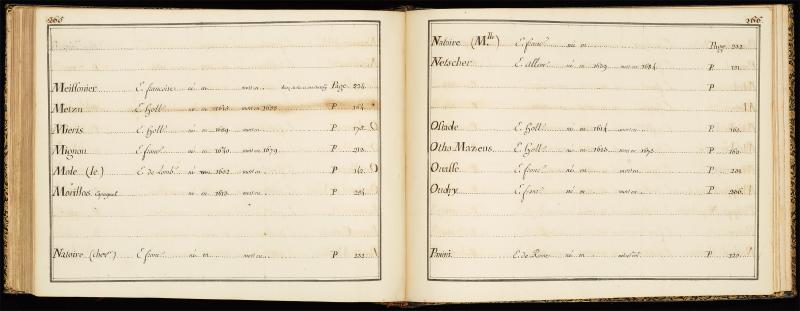 265
Meissonier E. francoise né en mort en Page. 224.
Metzu E. holl. né en 1615 mort en 1658 P 164.
Mieris E. holl. né en 1689 mort en P 178.
Mignon E. franc. né en 1640 mort en 1679 P 213.
Mole (le) E. de Lomb. né en 1602 mort en P 142.
Morillos. Espagnol né en 1613 mort en P 204.
Natoire (chev.) E. franc. né en mort en P 222.
266
Natoire (M.lle) E. franc. né en Page. 222.
Netscher E. Allem. né en 1639 mort en 1684 P. 181.
P
Ostade E. holl. né en 1614 mort en P. 162.
Otho Maræus. E. holl. né en 1613 mort en 1673 P. 160.
Oualle E. franc. né en mort en P. 201.
Oudry E. franc. né en mort en P. 206.
Panini. E. de Rome né en P. 120.